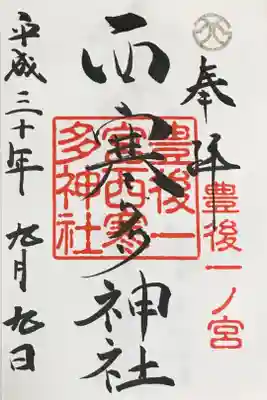 奉拝
豊後一ノ宮
西寒多神社
豊後一
宮西寒
多神社
平成三十年 九月九日